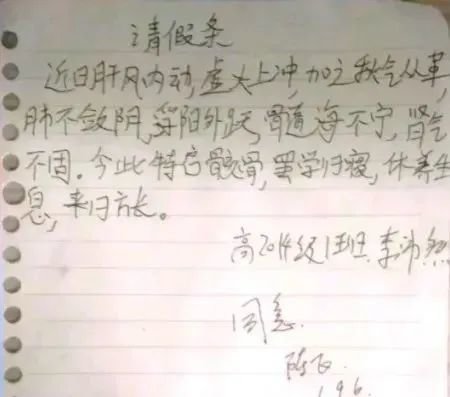 请假条
近日肝风内动,虚火上冲,加之秋气从革,
肺不敛阴,孤阳外跃,骨道海不宁,肾气
不固。今此特启骸骨,罢学归寝,休养生
息,来日方长。
高2014级1班.李沛然
同意.
陈飞.
1.9.6.